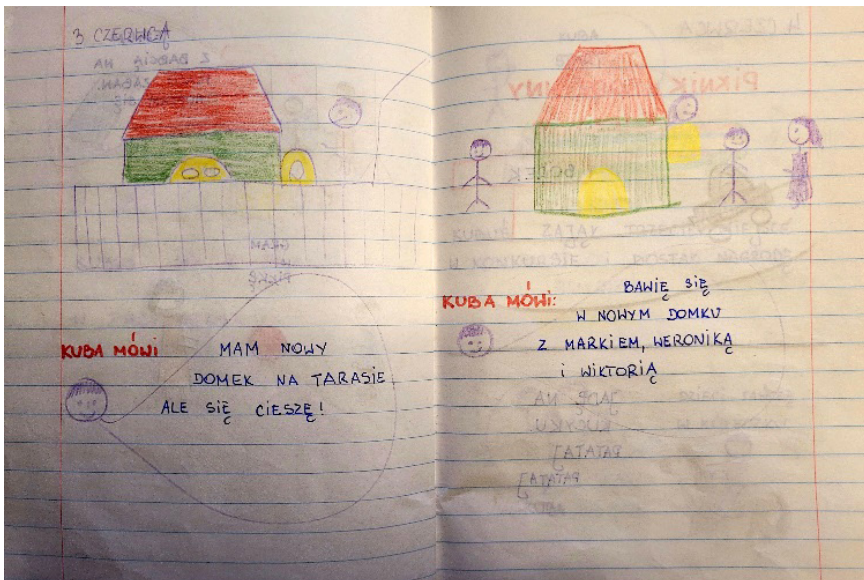 3 CZERWCA
KUBA MÓWI
MAM NOWY
DOMEK NA TARASIE,
ALE SIĘ CIESZĘ!
KUBA MÓWI:
BAWIĘ SIĘ
W NOWYM DOMKU
Z MARKIEM, WERONIKĄ
i WIKTORIĄ